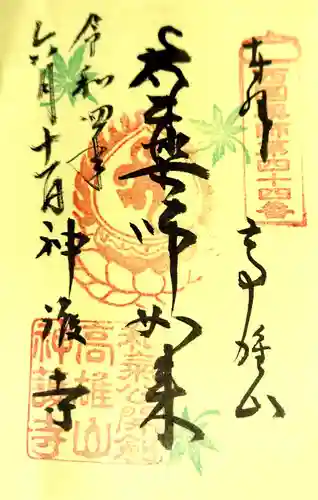 奉拝
高雄山
西国薬師第四十四番
薬師如来
神護寺
令和四年
六月十一日
高雄山
神護寺